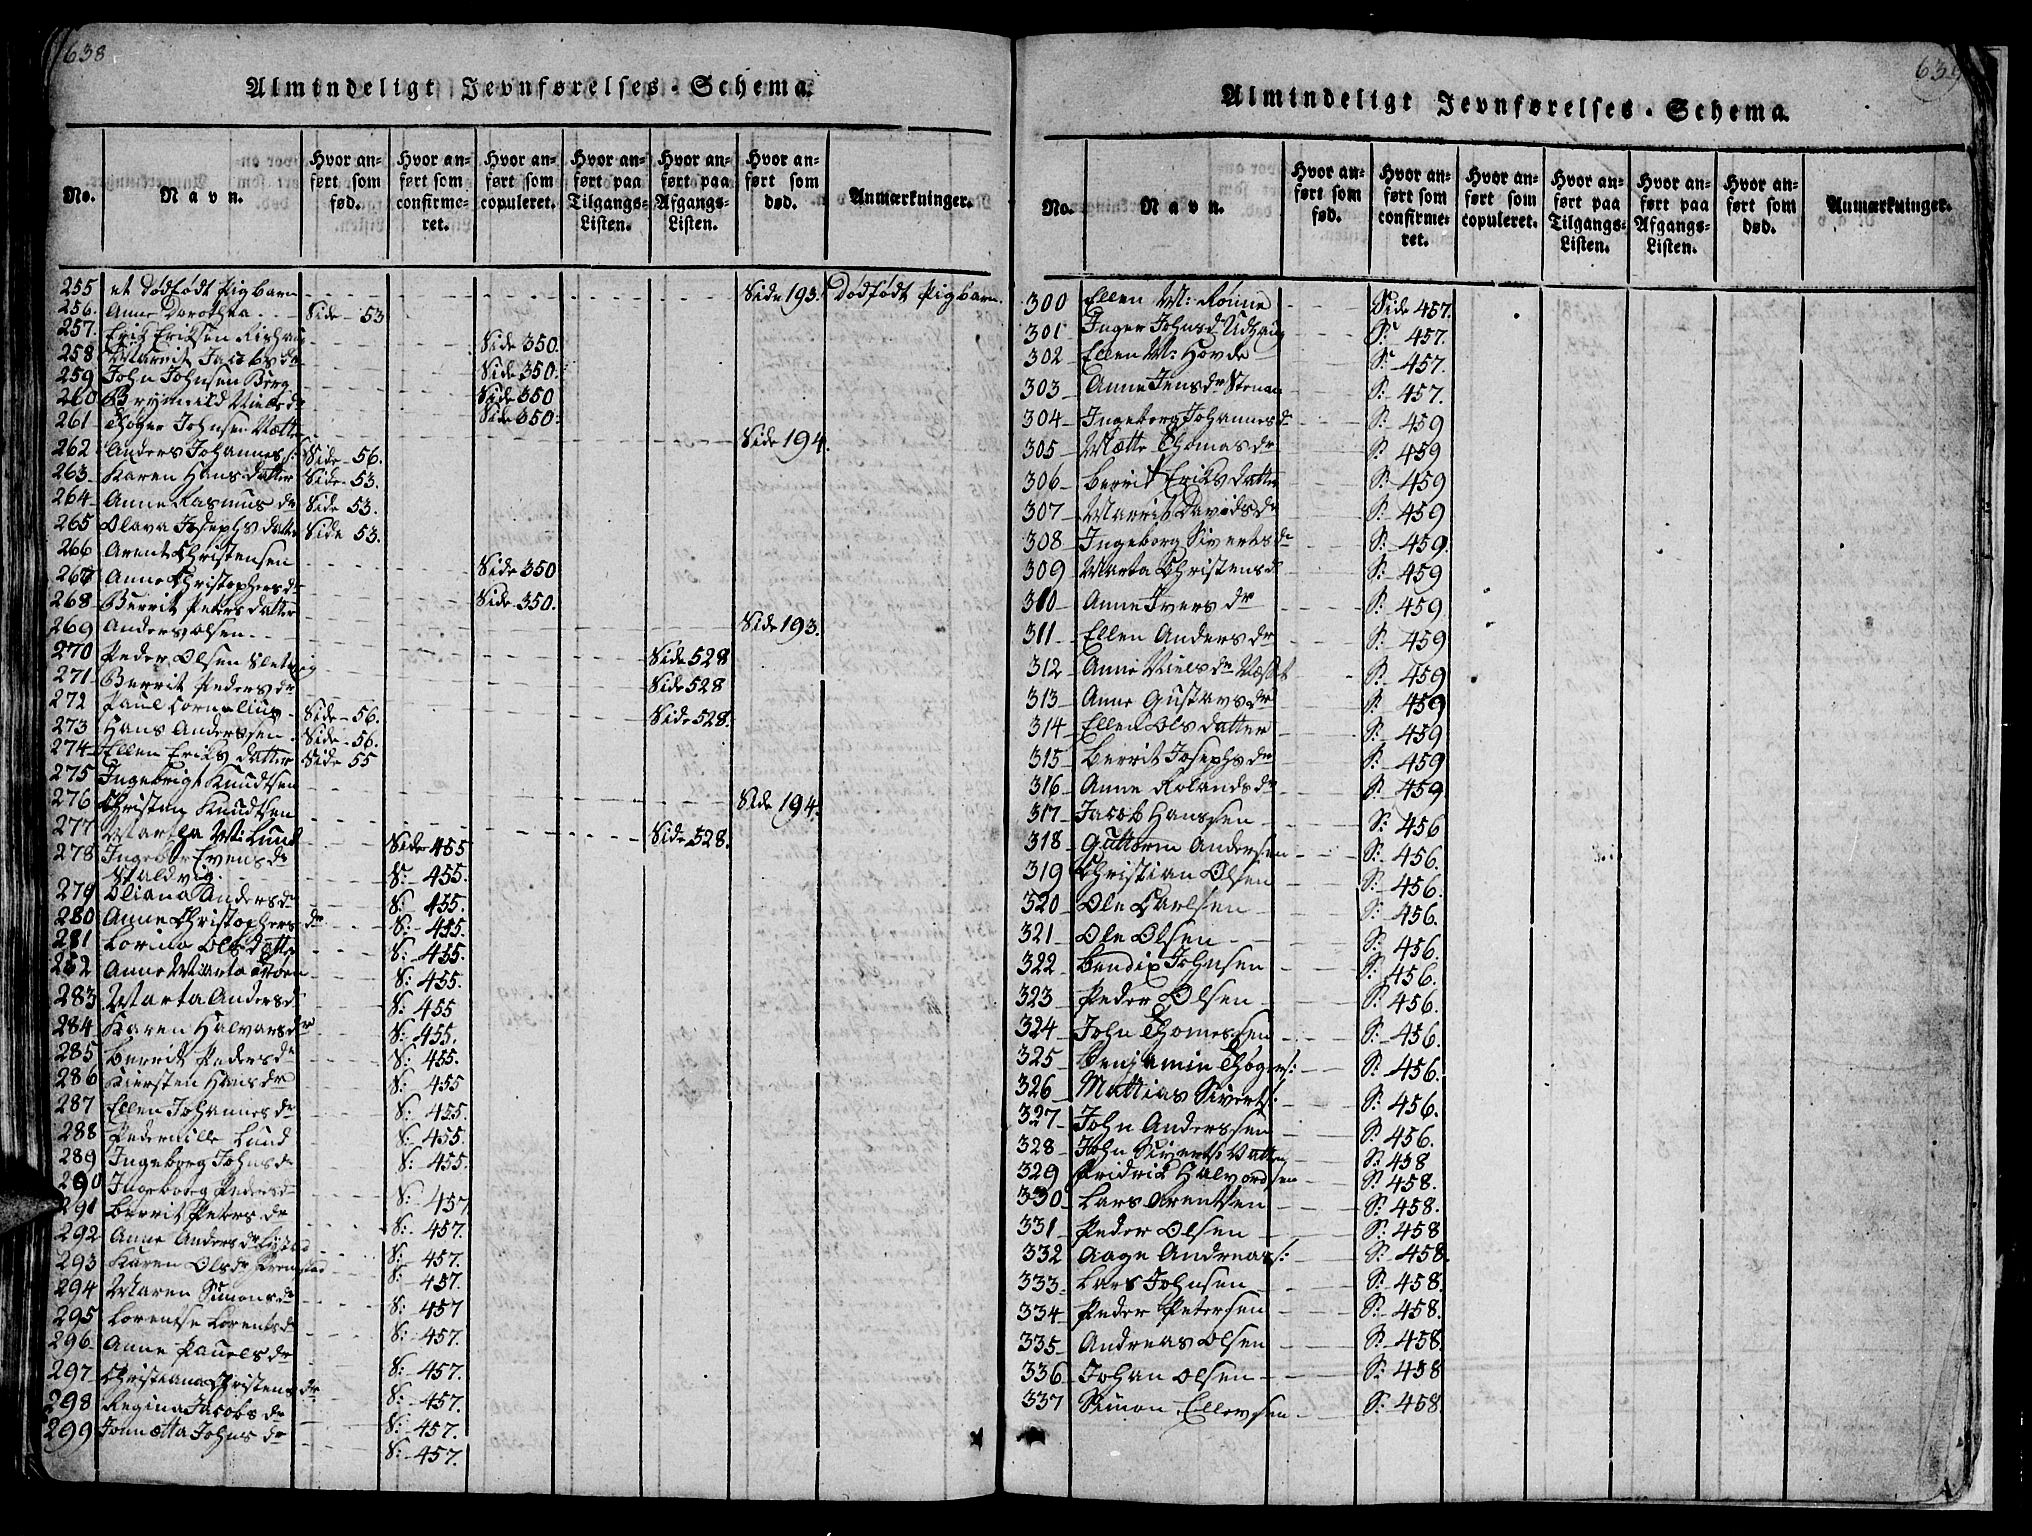 638
Almindeligt Jevnførelses-Schema.
No. Navn. Hvor anført som fød. Hvor anført som confirmeret. Hvor anført som copuleret. Hvor anført paa Tilgangs-Listen. Hvor anført paa Afgangs-Listen. Hvor anført som død. Anmærkninger.
255 et Dødfødt Pigbarn Side 193. Dødfødt Pigbarn.
256. Anne Dorothea Side - 53
257. Erik Eriksen Rishaug Side 350.
258 Marrit Jacobsdr Side 350.
259 John Johnsen Berg Side 350
260 Brynnild Nielsdr Side 350.
261 Thøger Johnsen Side 194.
262 Anders Johannes/: Side - 56.
263 Karen Hans datter Side - 53.
264 Anne Rasmus dr Side 53.
265 Olava Josephs datter Side 53.
266 Arent Christensen Side 350
267 Anne Christophersdr Side 350.
268 Berrit Peters datter Side 193.
269 Anders Olsen Side 528
270 Peder Olsen Sletvig Side 528
271 Berrit Peders dr Side 528.
272 Paul Cornelius Side - 56.
273 Hans Anderssen Side - 56.
274 Ellen Eriks datter Side 55
275 Ingebrigt Knudtsen Side 194.
276 Christen Knudtsen Side 528.
277 Martha M: Lund Side 455
278 Ingebor Evensdr Staldvig. S: - 455.
279 Oliana Andersdr S: 455.
280 Anne Christophers dr S: - 455.
281 Lorina Ols datter S: - 455.
282 Anne Marta Moen S: - 455.
283 Marta Andersdr S: 455
284 Karen Halvorsdr S: - 455.
285 Berrit Pedersdr S: - 455.
286 Kiersten Hansdr S: - 455
287 Ellen Johannes dr S: - 455.
288 Pedernille Lund S: - 455.
289 Ingeborg Johnsdr S: - 455.
290 Ingeborg Pedersdr S: - 457
291 Berrit Peters dr S: - 457.
292 Anne Andersdr S: - 457.
293 Karen Olsdr S: - 457.
294 Maren Simonsdr S: - 457
295 Lorentse Lorentsdr S: - 457.
296 Anne Pauels dr S: - 457.
297 Christiana Christens dr S: - 457.
298 Regina Jacobs dr S: - 457.
299 Jonnetta Johns dr S: - 457.
639
Almindeligt Jevnførelses-Schema.
No. Navn. Hvor anført som fød. Hvor anført som confirmeret. Hvor anført som copuleret. Hvor anført paa Tilgangs-Listen. Hvor anført paa Afgangs-Listen. Hvor anført som død. Anmærkninger.
300 Ellen M: Rønne Side 457.
301 Inger Johnsdr Udhaug S: 457.
302 Ellen M: Hovde S: - 457.
303 Anne Jensdr Stenan S: - 457.
304 Ingeborg Johannesdr S: - 459
305 Mætte Thomas dr S: - 459
306 Berrit Eriks datter S: - 459
307 Marrit Davidsdr S: - 459
308 Ingeborg Sivertsdr S: - 459.
309 Marta Christensdr S: - 459
310 Anne Ivers dr S: - 459
311 Ellen Anders dr S: - 459
312 Anne Nielsdr S: - 459
313 Anne Gustavs dr S: - 459
314 Ellen Ols datter S: - 459
315 Berrit Josephs dr S: - 459
316 Anne Rolands dr S: - 459
317 Jacob Hanssen S: - 456
318 Guttorm Andersen S: - 456.
319 Christian Olsen S: - 456.
320 Ole Carlsen S: - 456.
321 Ole Olsen S: - 456.
322 Bendix Johnsen S: - 456.
323 Peder Olsen S: - 456.
324 John Thomessen S: - 456.
325 Benjamin Thøgers/: S: - 456.
326 Mathias Siverts/: S: - 456.
327 John Anderssen S: - 456.
328 John Siverts: Vatten S: - 458
329 Fridrik Halvordsen S: - 458.
330 Lars Arentsen S: - 458.
331 Peder Olsen S: - 458
332 Aage Andreas/: S: - 458.
333 Lars Johnsen S: - 458.
334 Peder Petersen S: - 458.
335 Andreas Olsen S: - 458.
336 Johan Olsen S: - 458
337 Simon Ellevsen S: - 458